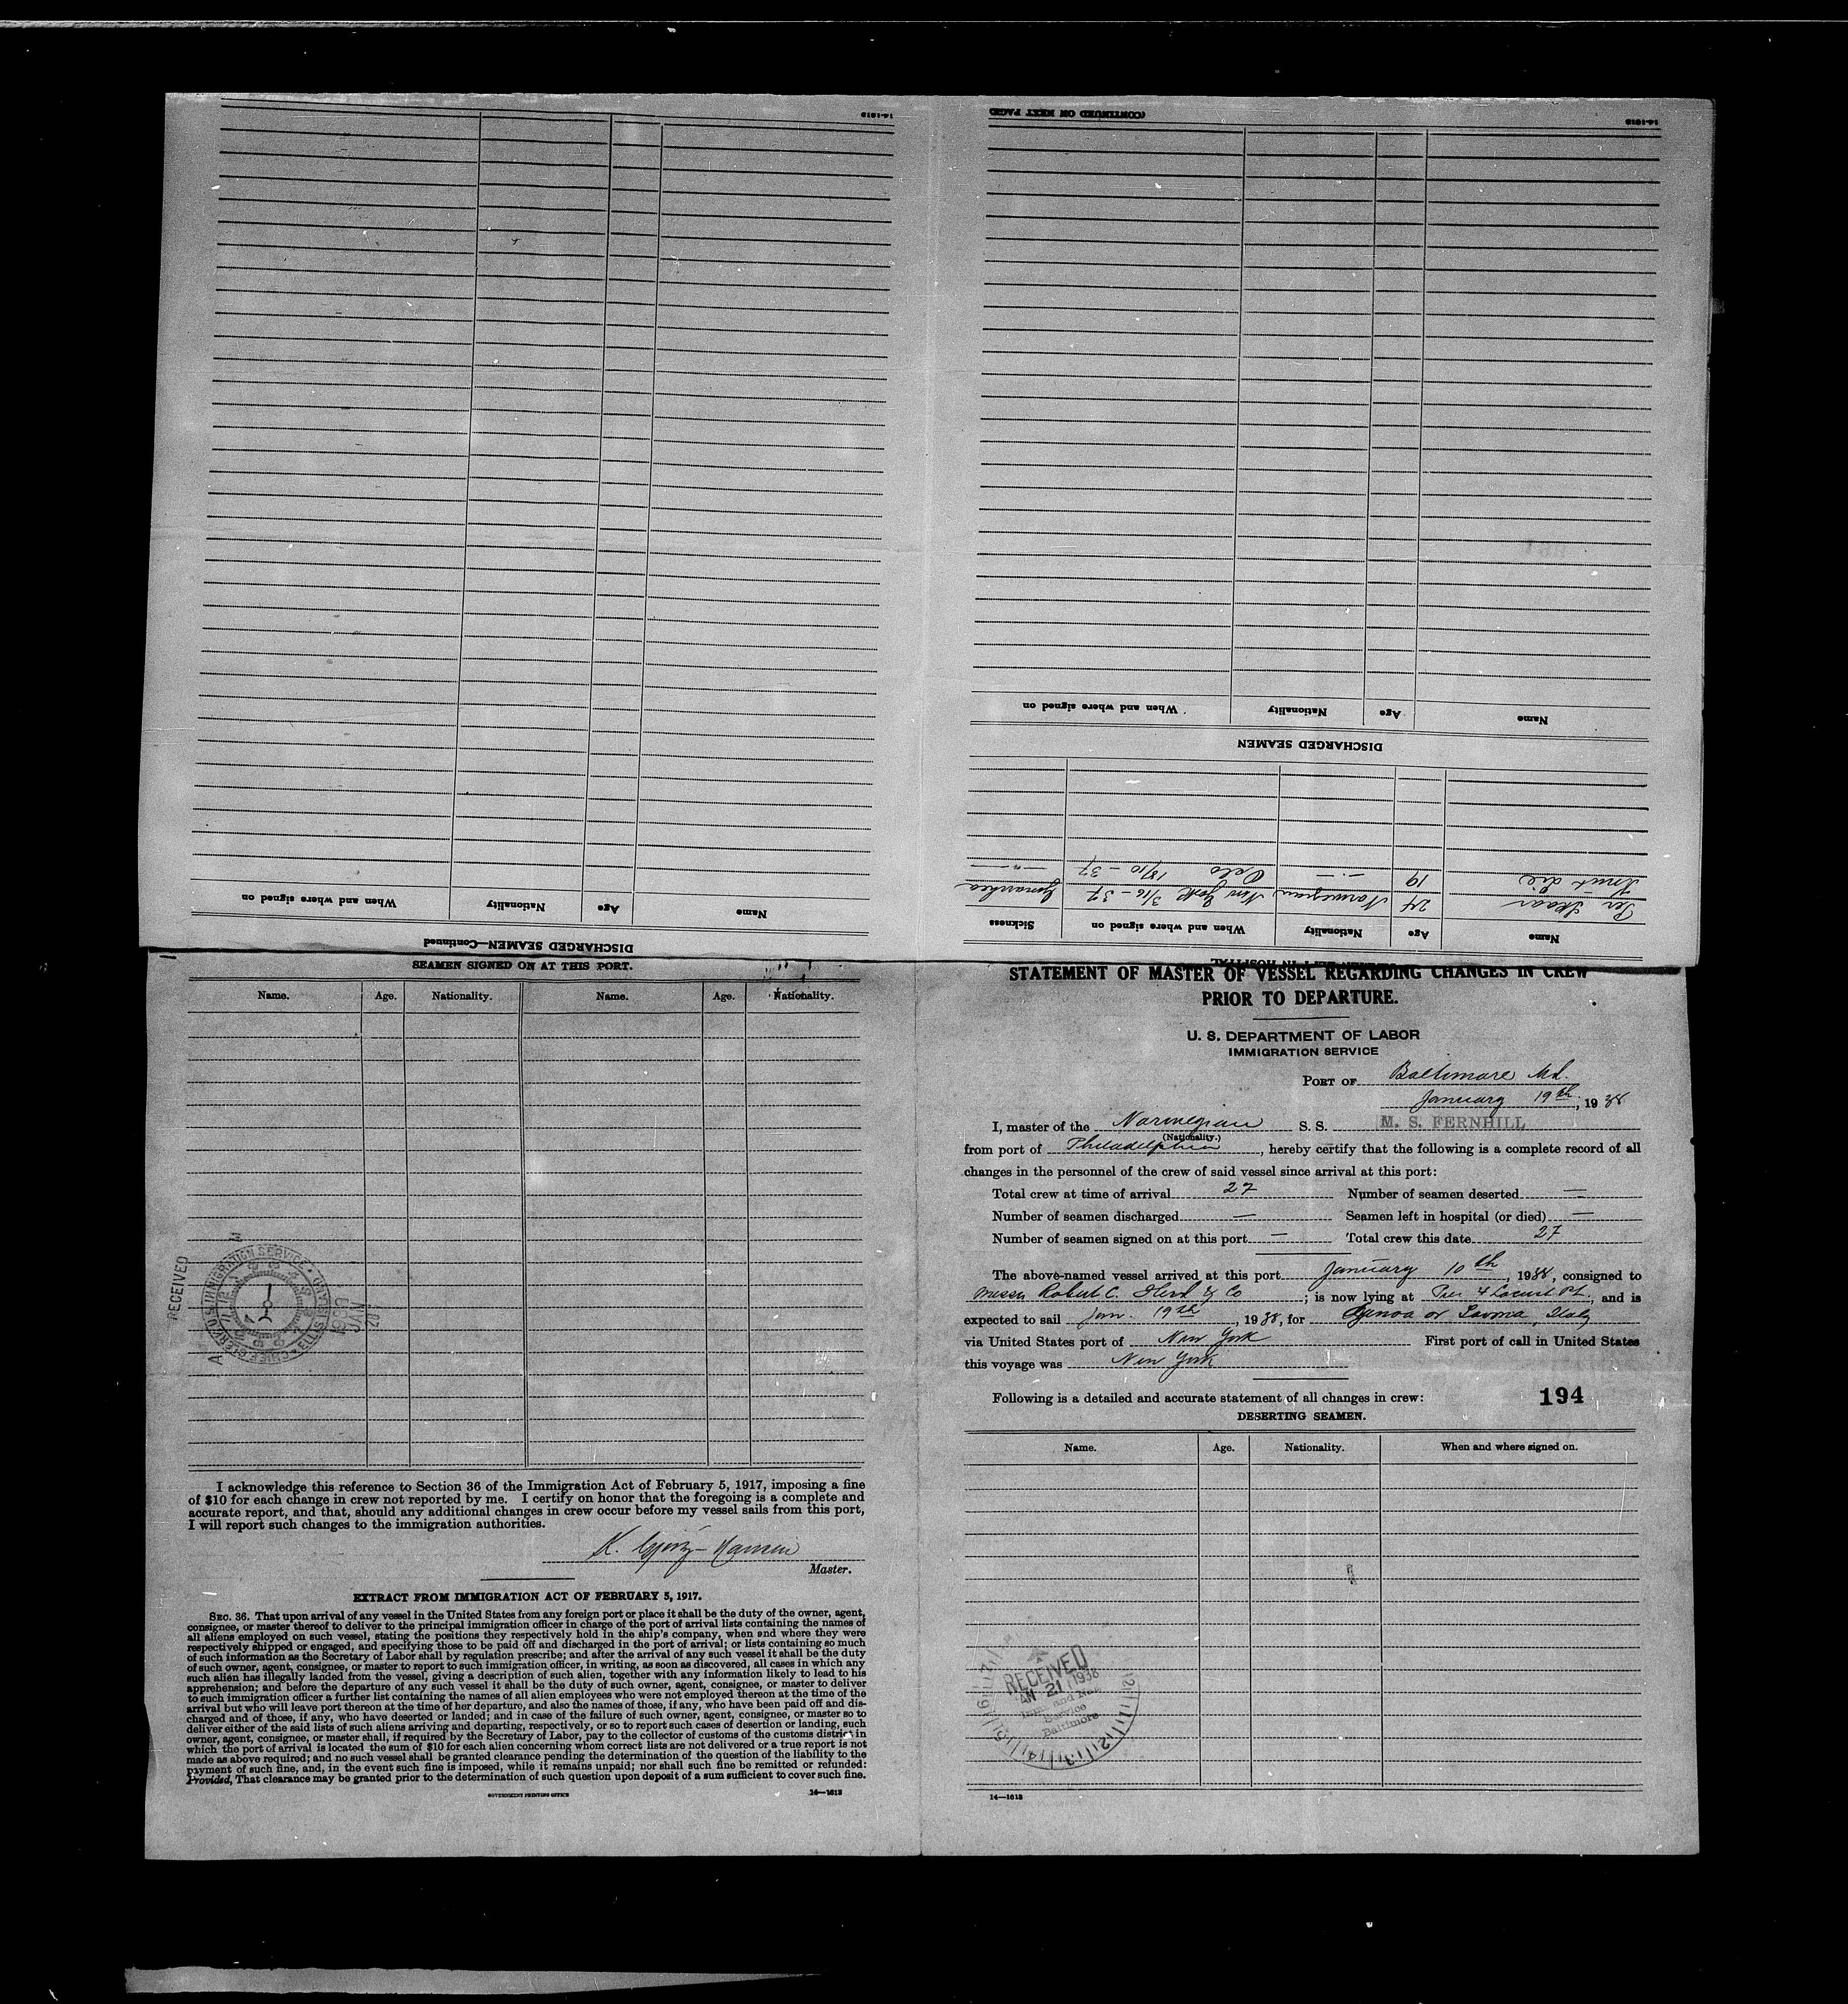 (CONTINUED ON NEXT PAGE)
14-1613
DISCHARGED SEAMEN
Name Age Nationality When and where signed on
Name Age Nationality When and where signed on Sickness
Per 24 Norwegian New York 3/12-37
Knut Lie 19 Oslo 18/10-37
14-1613
DISCHARGED SEAMEN—Continued
Name Age Nationality When and where signed on
SEAMEN SIGNED ON AT THIS PORT.
Name. Age. Nationality. Name. Age. Nationality.
RECEIVED
I acknowledge this reference to Section 36 of the Immigration Act of February 5, 1917, imposing a fine
of $10 for each change in crew not reported by me. I certify on honor that the foregoing is a complete and
accurate report, and that, should any additional changes in crew occur before my vessel sails from this port,
I will report such changes to the immigration authorities.
Master.
EXTRACT FROM IMMIGRATION ACT OF FEBRUARY 5, 1917.
SEC. 36. That upon arrival of any vessel in the United States from any foreign port or place it shall be the duty of the owner, agent,
consignee, or master thereof to deliver to the principal immigration officer in charge of the port of arrival lists containing the names of
all aliens employed on such vessel, stating the positions they respectively hold in the ship's company, when and where they were
respectively shipped or engaged, and specifying those to be paid off and discharged in the port of arrival; or lists containing so much
of such information as the Secretary of Labor shall by regulation prescribe; and after the arrival of any such vessel it shall be the duty
of such owner, agent, consignee, or master to report to such immigration officer, in writing, as soon as discovered, all cases in which any
such alien has illegally landed from the vessel, giving a description of such alien, together with any information likely to lead to his
apprehension; and before the departure of any such vessel it shall be the duty of such owner, agent, consignee, or master to deliver
to such immigration officer a further list containing the names of all alien employees who were not employed thereon at the time of the
arrival but who will leave port thereon at the time of her departure, and also the names of those, if any, who have been paid off and dis-
charged and of those, if any, who have deserted or landed; and in case of the failure of such owner, agent, consignee, or master so to
deliver either of the said lists of such aliens arriving and departing, respectively, or so to report such cases of desertion or landing, such
owner, agent, consignee, or master shall, if required by the Secretary of Labor, pay to the collector of customs of the customs district in
which the port of arrival is located the sum of $10 for each alien concerning whom correct lists are not delivered or a true report is not
made as above required; and no such vessel shall be granted clearance pending the determination of the question of the liability to the
payment of such fine, and, in the event such fine is imposed, while it remains unpaid; nor shall such fine be remitted or refunded:
Provided, That clearance may be granted prior to the determination of such question upon deposit of a sum sufficient to cover such fine.
GOVERNMENT PRINTING OFFICE 14—1613
STATEMENT OF MASTER OF VESSEL REGARDING CHANGES IN CREW
PRIOR TO DEPARTURE.
U. S. DEPARTMENT OF LABOR
IMMIGRATION SERVICE
PORT OF Baltimore Md.
January 19th, 1938
I, master of the Norwegian S. S. M. S. FERNHILL
(Nationality.)
from port of Philadelphia, hereby certify that the following is a complete record of all
changes in the personnel of the crew of said vessel since arrival at this port:
Total crew at time of arrival 27 Number of seamen deserted —
Number of seamen discharged — Seamen left in hospital (or died) —
Number of seamen signed on at this port — Total crew this date 27
The above-named vessel arrived at this port January 10th, 1938, consigned to
Messrs Robert C. Herd & Co; is now lying at Pier 4 Locust Pt., and is
expected to sail Jan. 19th, 1938, for Genoa or Savona, Italy
via United States port of New York First port of call in United States
this voyage was New York
Following is a detailed and accurate statement of all changes in crew: 194
DESERTING SEAMEN.
Name. Age. Nationality. When and where signed on.
RECEIVED
JAN 21 1938
Service
Baltimore
14—1613